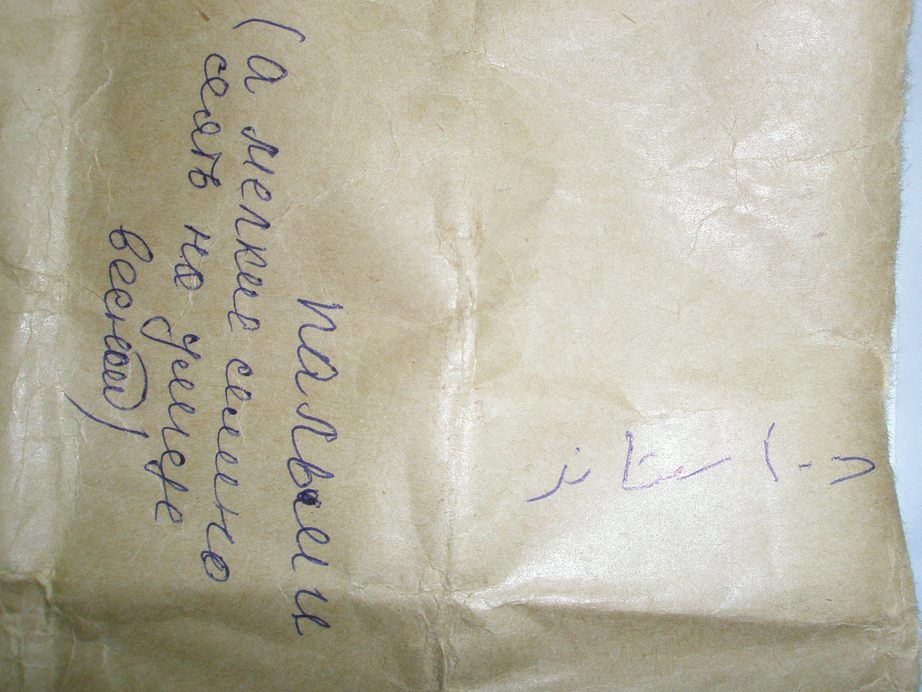 пальмы
(а мелкие семена
сеять на улице
весной)